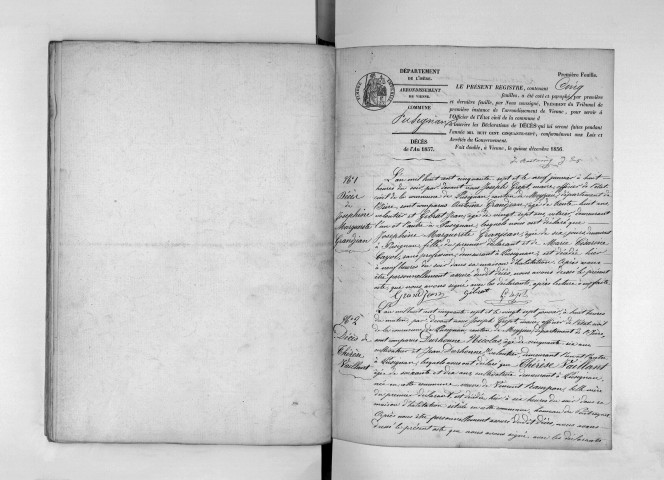 DÉPARTEMENT
DE L'ISÈRE.
ARRONDISSEMENT
DE VIENNE.
COMMUNE
Pusignan
DÉCÈS
de l'An 1857.
Première Feuille.
LE PRÉSENT REGISTRE, contenant Cinq
feuilles, a été coté et paraphé par première
et dernière feuille, par Nous soussigné, Président du Tribunal de
première instance de l'arrondissement de Vienne, pour servir à
l'Officier de l'État civil de la commune d
à inscrire les Déclarations de DÉCÈS qui lui seront faites pendant
l'année MIL HUIT CENT CINQUANTE-SEPT, conformément aux Lois et
Arrêtés du Gouvernement.
Fait double, à Vienne, le quinze décembre 1856.
N° 1
Décès
de
Joséphine
Marguerite
Grandjean
L'an mil huit cent cinquante sept et le neuf janvier à huit
heures du soir par devant nous Joseph Gept, maire, officier de l'état
civil de la commune de Pusignan, canton de Meyzieu, département de
l'Isère, sont comparus Grandjean, âgé de trente huit ans
cultivateur et Gibrat Jean, âgé de vingt sept ans, demeurant
l'un et l'autre à Pusignan, lesquels nous ont déclaré que
Joséphine Marguerite Grandjean, âgée de six jours, demeurant
à Pusignan, fille du premier déclarant et de Marie
sans profession, demeurant à Pusignan, est décédée hier
à neuf heures du soir dans sa maison d'habitation. Après nous
être personnellement assuré dudit décès, nous avons dressé le présent
acte, que nous avons signé avec les déclarants, après lecture
Grandjean Gibrat
N° 2
Décès de
Thérèse
Vaillant
L'an mil huit cent cinquante sept et le vingt sept janvier, à huit heures
du matin par devant nous Joseph Gept, maire, officier de l'état civil
de la commune de Pusignan, canton de Meyzieu, département de l'Isère,
sont comparus Durhonne Nicolas, âgé de cinquante six ans
cultivateur et Jean Durhonne cultivateur demeurant l'un et l'autre
à Pusignan, lesquels nous ont déclaré que Thérèse Vaillant
âgée de soixante et dix ans demeurant à Pusignan,
née en cette commune, veuve de Vincent Rampon, belle mère
du premier déclarant, est décédée hier à six heures du soir dans sa
maison d'habitation située en cette commune,
Après nous être personnellement assuré dudit décès, nous avons
dressé le présent acte que nous avons signé, avec les déclarants